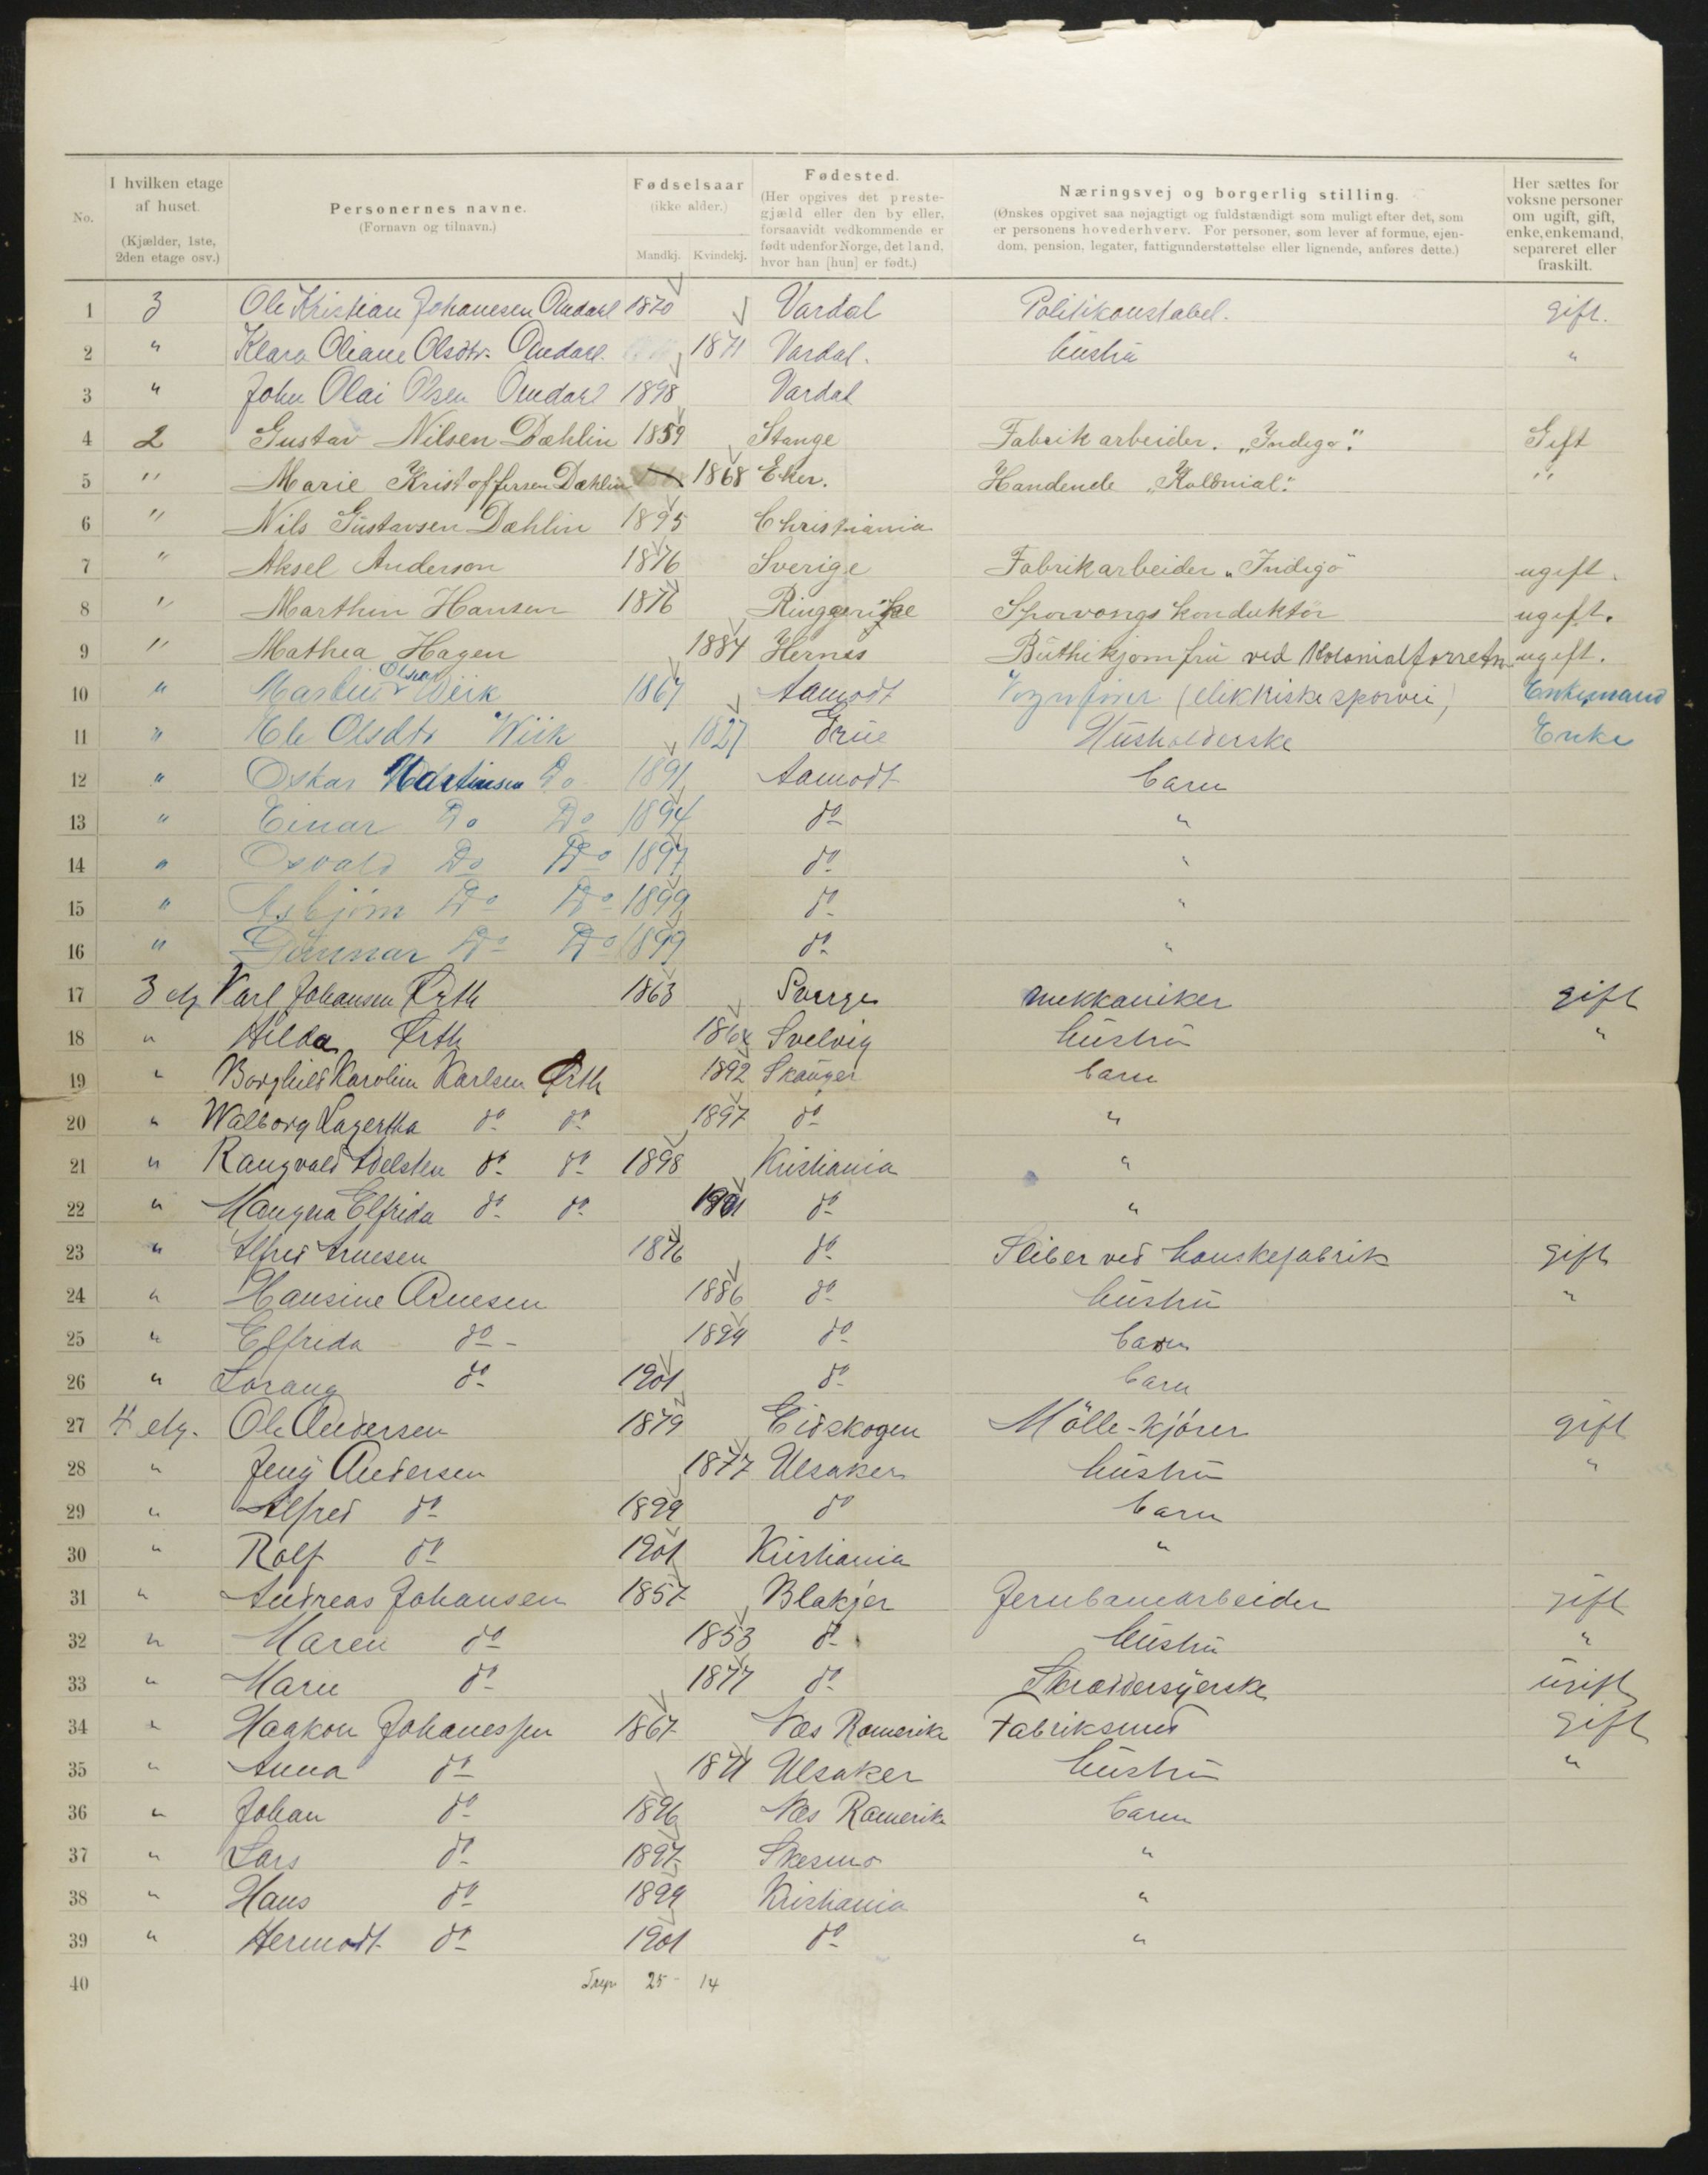 No. | I hvilken etage af huset. (Kjælder, 1ste, 2den etage osv.) | Personernes navne. (Fornavn og tilnavn.) | Fødselsaar (ikke alder.) Mandkj. Kvindekj. | Fødested. (Her opgives det prestegjæld eller den by eller, forsaavidt vedkommende er født udenfor Norge, det land, hvor han [hun] er født.) | Næringsvej og borgerlig stilling. (Ønskes opgivet saa nøjagtigt og fuldstændigt som muligt efter det, som er personens hovederhverv. For personer, som lever af formue, ejendom, pension, legater, fattigunderstøttelse eller lignende, anføres dette.) | Her sættes for voksne personer om ugift, gift, enke, enkemand, separeret eller fraskilt.
1 3 Ole Kristian Johanesen Ondahl 1870 Vardal Politikonstabel. gift.
2 " Klara Oliane Olsdtr. Ondahl 1871 Vardal. hustru "
3 " John Olai Olsen Ondahl 1898 Vardal
4 2 Gustav Nilsen Dæhlin 1859 Stange Fabrik arbeider. „Indigo". Gift
5 " Marie Kristoffersen Dæhlin 1868 Eker. Handende „Kolonial". "
6 " Nils Gustavsen Dæhlin 1895 Christiania
7 " Aksel Anderson 1876 Sverige Fabrikarbeider „Indigo" ugift.
8 " Marthin Hansen 1876 Ringgerike Sporvongs konduktör ugift.
9 " Mathea Hagen 1884 Hernes Buthikjomfru ved Kolonialforretn. ugift.
10 " Martin Olsen Wiik 1867 Aamodt Vognfører (elektriske sporvei) Enkemand
11 " Ele Olsdtr Wiik 1827 Grue Husholderske Enke
12 " Oskar Martinsen Do 1891 Aamodt barn
13 " Einar Do Do 1894 do "
14 " Osvald Do Do 1897 do "
15 " Asbjørn Do Do 1899 do "
16 " Gunnar Do Do 1899 do "
17 3 etg Karl Johansen Ørth 1863 Sverge mekkaniker gift
18 " Hilda Ørth 1864 Svelvig hustru "
19 " Borghild Karoline Karlsen Ørth 1892 Skauger barn
20 " Walborg Lagertha do do 1897 do "
21 " Rangvald Adelsten do do 1898 Kristiania "
22 " Mangna Elfrida do do 1901 do "
23 " Alfred Arnesen 1876 do Sliber ved hanskefabrik gift
24 " Hansine Arnesen 1886 do hustru "
25 " Elfrida do 1899 do barn
26 " Lorang do 1901 do barn
27 4 etg. Ole Andersen 1879 Eidskogen Mölle-kjörer gift
28 " Jeny Andersen 1877 Ulsaker hustru "
29 " Alfred do 1899 do barn
30 " Rolf do 1901 Kristiania "
31 " Andreas Johansen 1857 Blakjer Jernbanearbeider gift
32 " Maren do 1853 do hustru "
33 " Marie do 1877 do Skræddersyerske ugift
34 " Haakon Johanessen 1867 Næs Romerike Fabriksmed gift
35 " Anna do 1871 Ulsaker hustru "
36 " Johan do 1896 Næs Romerike barn
37 " Lars do 1897 Skesmo "
38 " Hans do 1899 Kristiania "
39 " Hermodt do 1901 do "
40 25 - 14